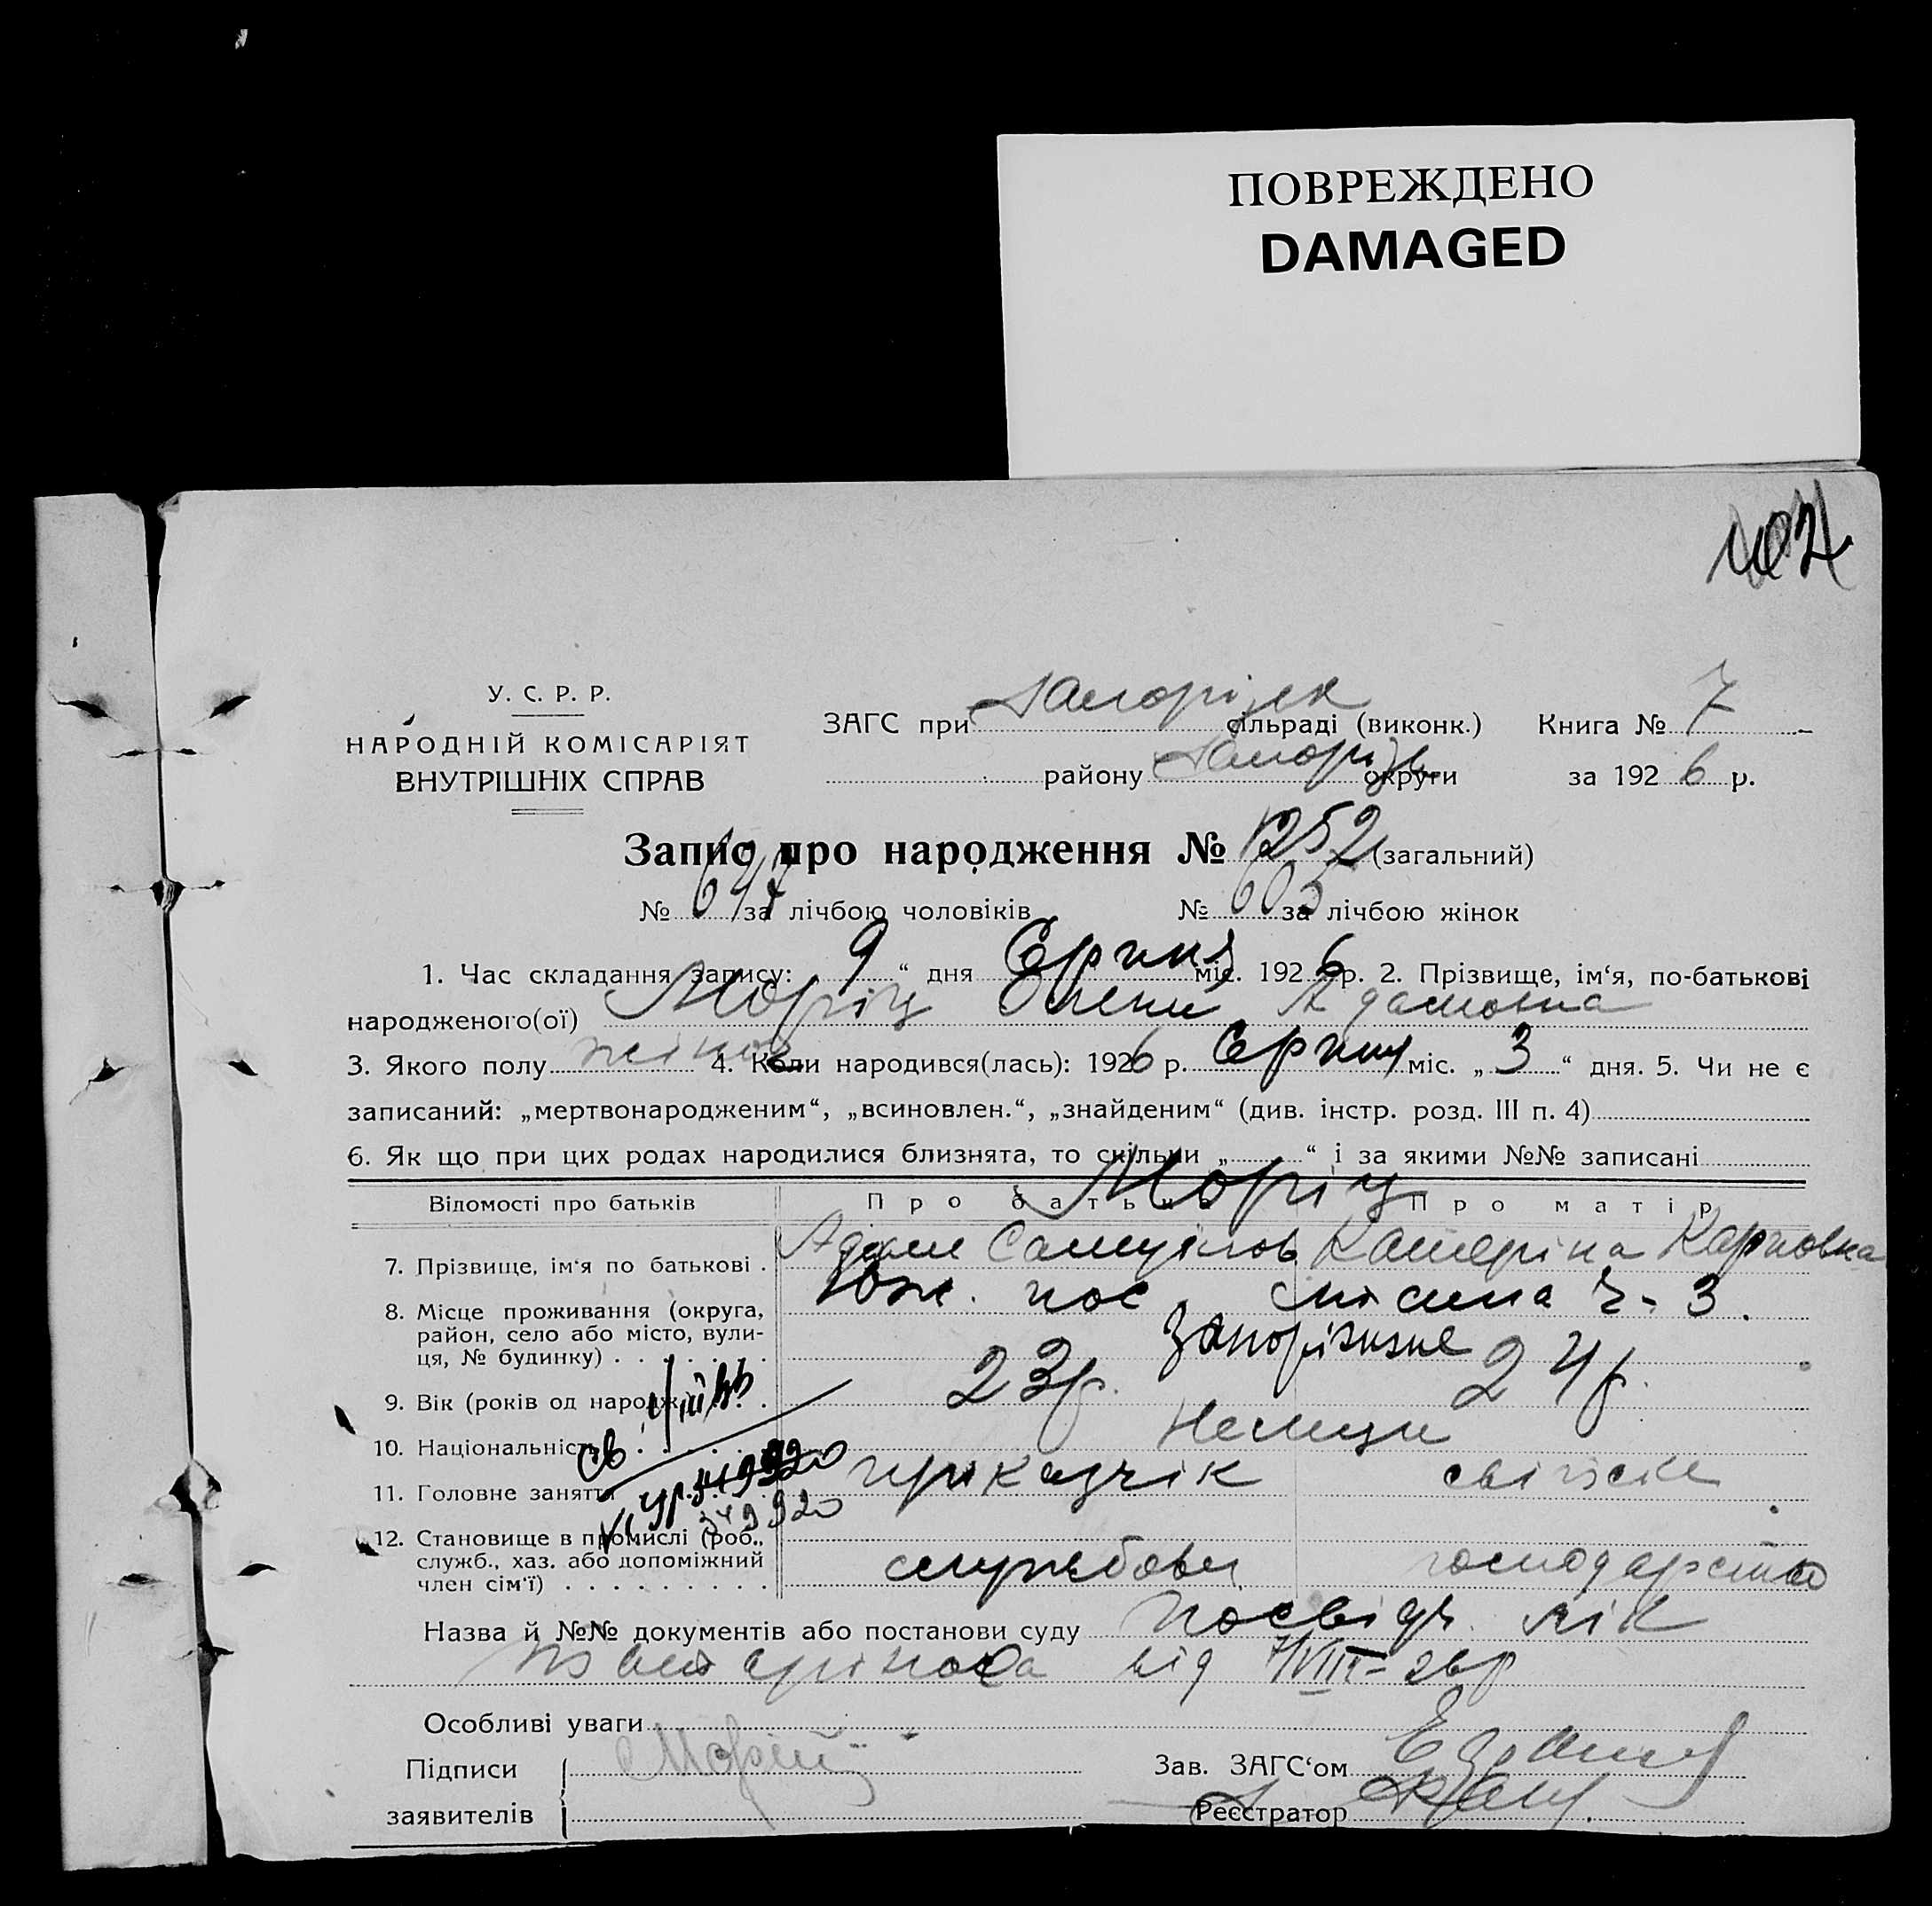 ПОВРЕЖДЕНО
DAMAGED
У. С. Р. Р.
НАРОДНІЙ КОМІСАРІЯТ
ВНУТРІШНІХ СПРАВ
ЗАГС при Запоріжж сільраді (виконк.) Книга № 7
району Запоріж округи за 1926 р.
Запис про народження № 1252 (загальний)
№ 647 за лічбою чоловіків № 605 за лічбою жінок
1. Час складання запису: 9 “ дня Серпня міс. 1926 р. 2. Прізвище, ім‘я, по-батькові
народженого(ої) Моріц Олена Адамовна
3. Якого полу жіноч 4. Коли народився(лась): 1926 р. Серпня міс. „ 3 “ дня. 5. Чи не є
записаний: „мертвонародженим“, „всиновлен.“, „знайденим“ (див. інстр. розд. III п. 4)
6. Як що при цих родах народилися близнята, то скільки „ “ і за якими №№ записані
Відомості про батьків Про батька Моріц Про матір
7. Прізвище, ім‘я по батькові . Адам Самуілов Катеріна Карповна
8. Місце проживання (округа, район, село або місто, вулиця, № будинку) Юж. пос. ч- 3.
Запоріжже
9. Вік (років од народж.) 23р. 24р.
10. Національність Немци
11. Головне заняття приказчік свійске
12. Становище в промислі (роб., служб., хаз. або допоміжний член сім‘ї) службовець господарство
349920
Назва й №№ документів або постанови суду Посвідч. лік
від 7/VIII-26р
Особливі уваги
Підписи Моріц
заявителів
Зав. ЗАГС‘ом
Реєстратор